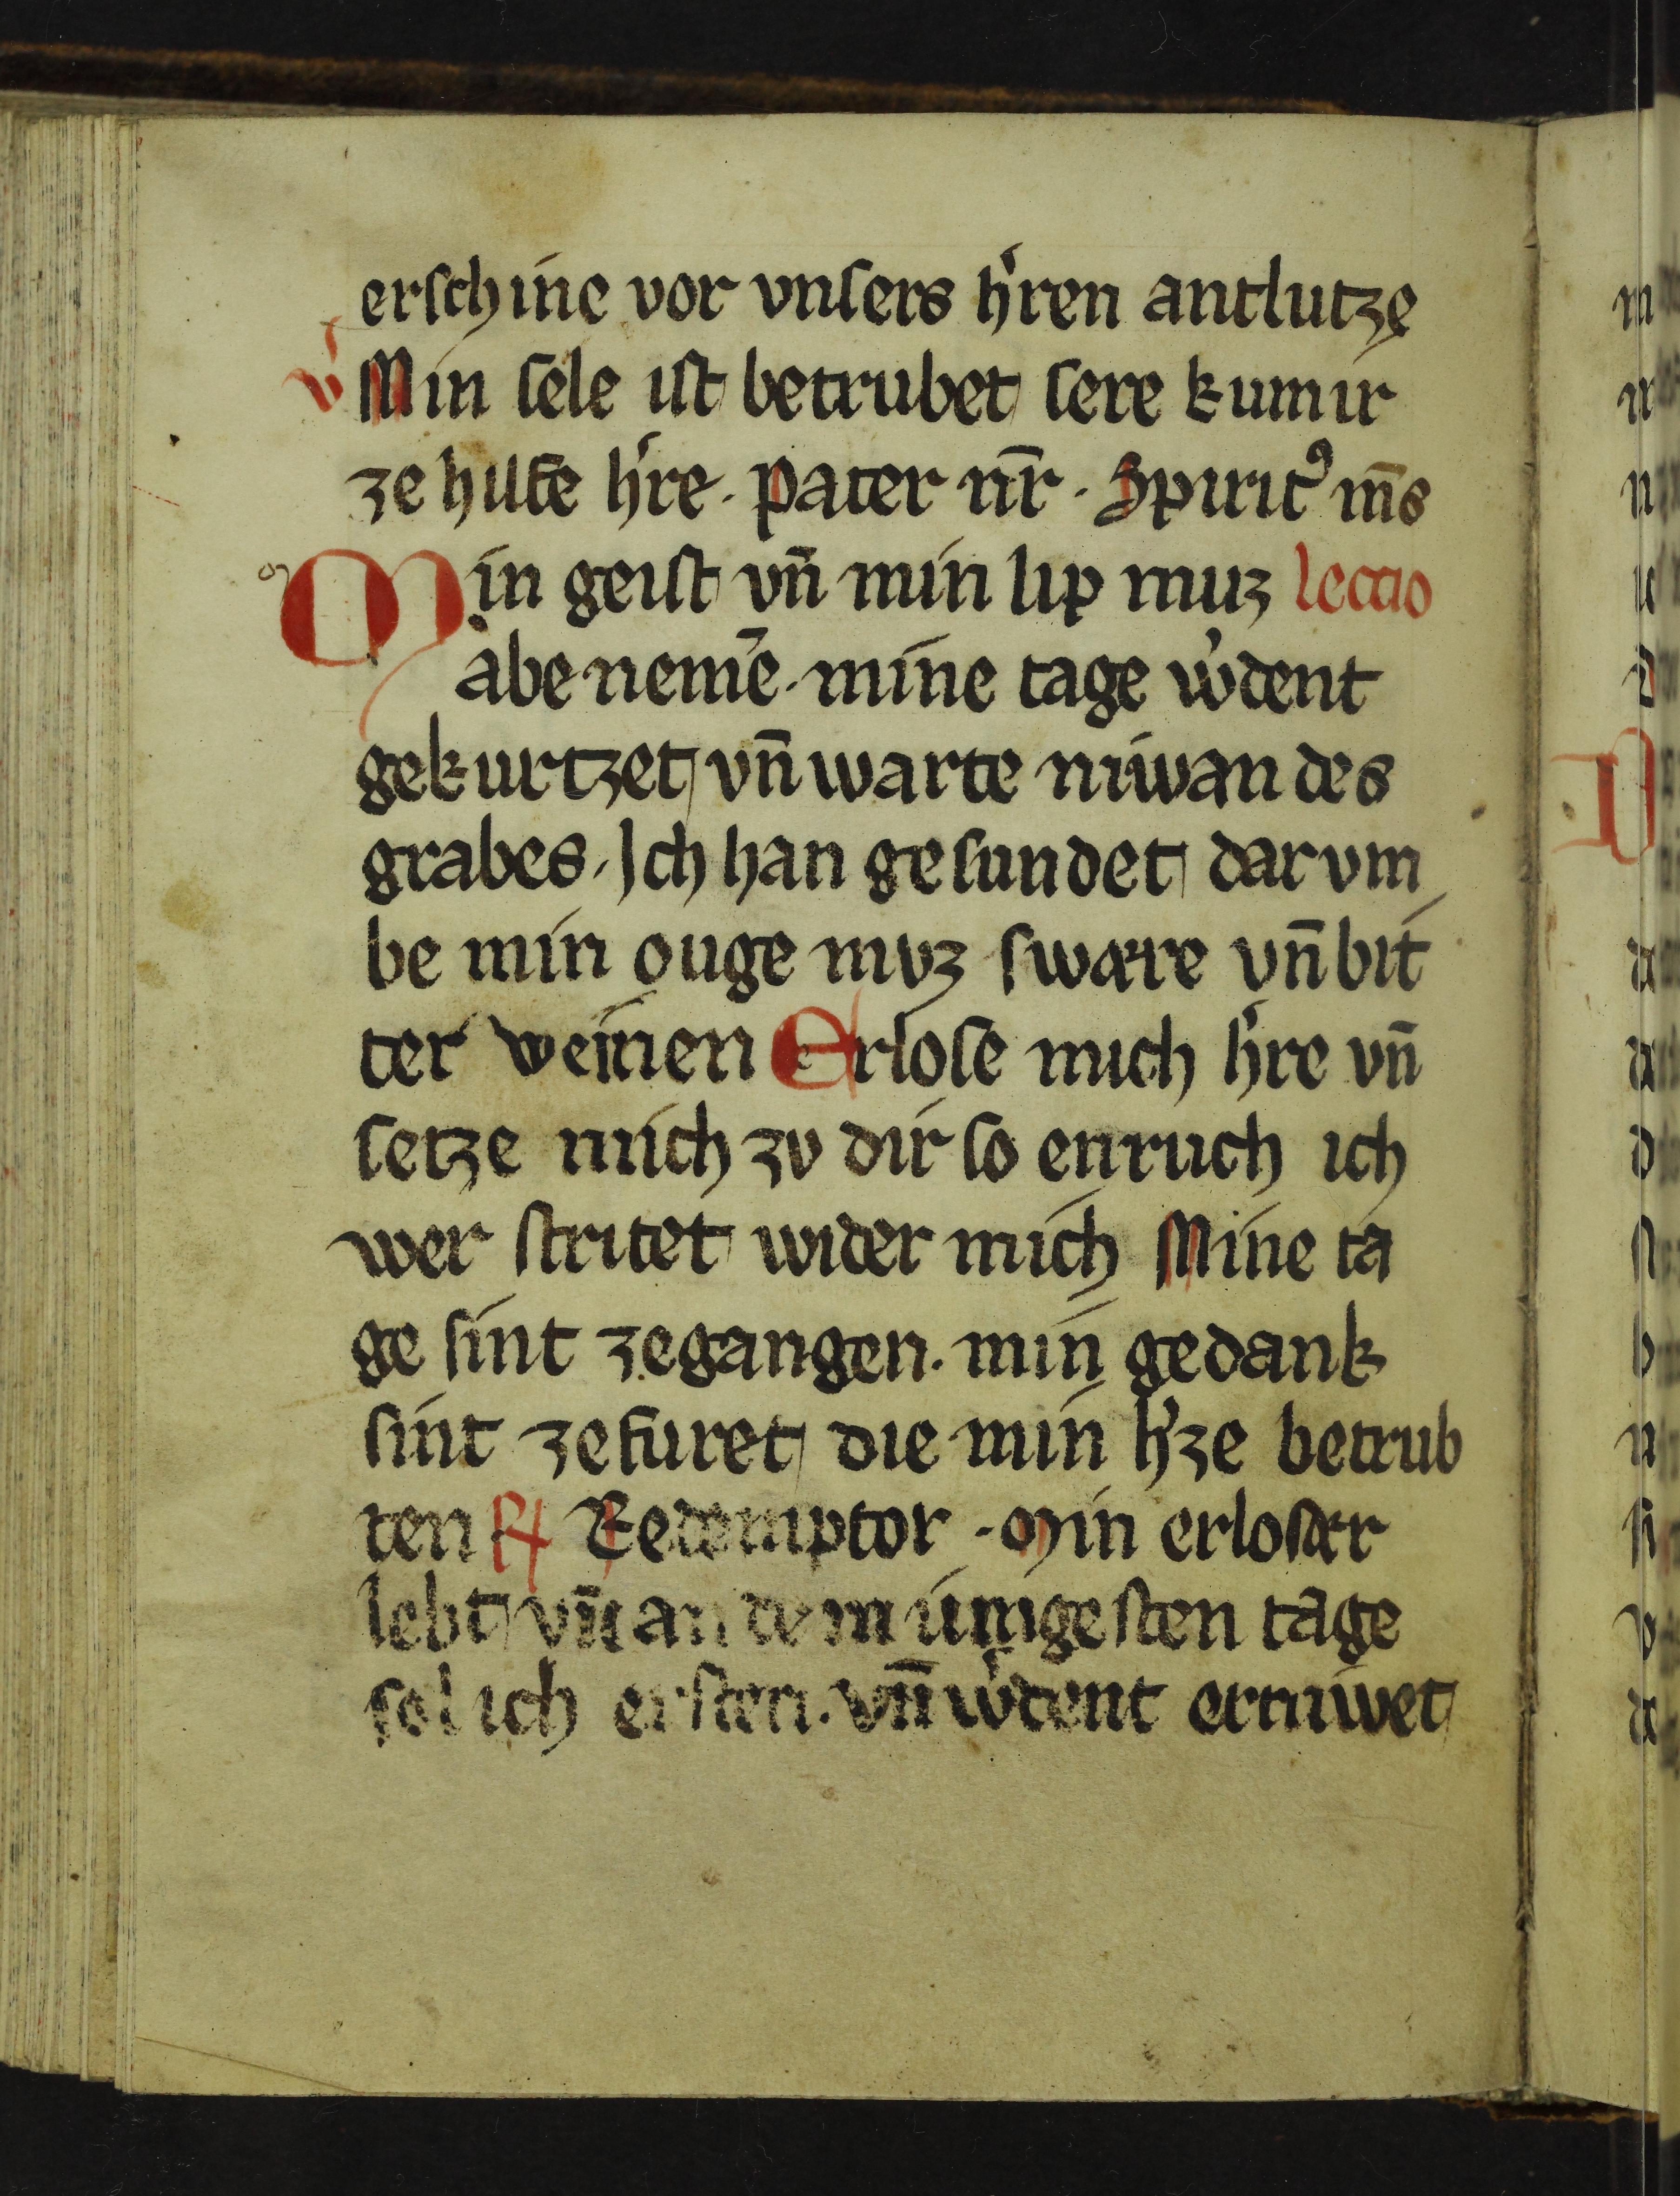 erschine vor vnsers h̓ren antlutze
v̓ Min sele ist betrubet sere kumir
ze hilfe h̓re. pater nr̄. Spiritꝰ ms̄
Min geist vn̄ min lip muz lectio
abe nemē. mine tage w̓dent
gekurtzet vn̄ warte niwan des
grabes. Ich han gesundet dar vm
be min ouge mvz sware vn̄ bit
ter weinen Erlose mich h̓re vn̄
setze mich zv dir so enruch ich
wer stritet wider mich Mine ta
ge sint zegangen. min gedank
sint zefuret die min h̓ze betrub
ten ℟ Redemptor. Min erlosær
lebt vn̄ an dem iungesten tage
sol ich ersten. vn̄ w̓dent erniwet